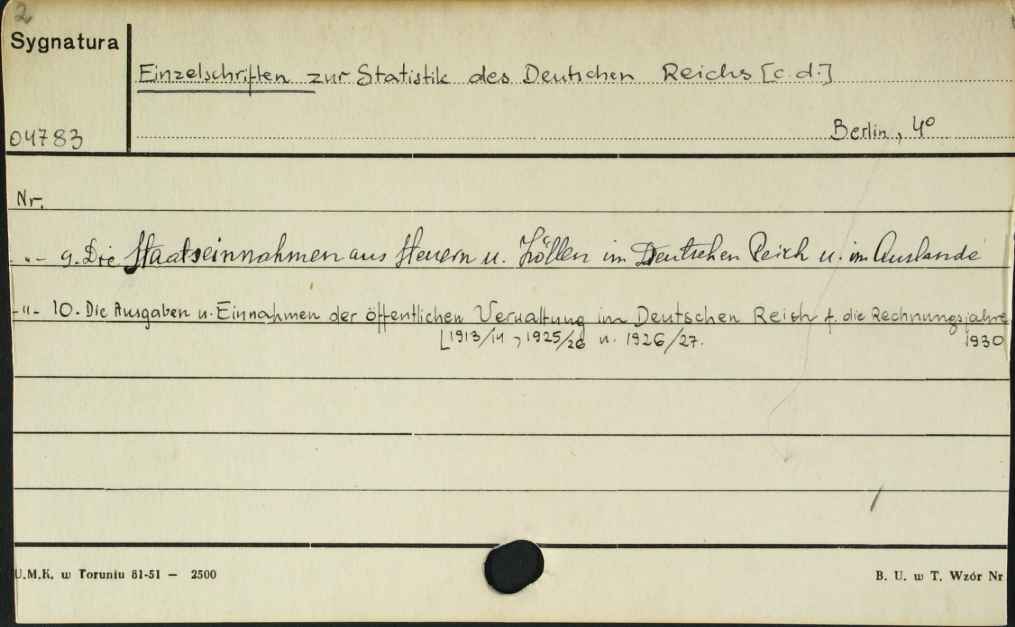 2
Sygnatura
Einzelschriften zur Statistik des Deutschen Reichs [c. d.]
04783
Berlin, 4º
Nr.
-"- 9. Die Staatseinnahmen aus Steuern u. Zöllen im Deutschen Reich u. im Auslande
-"- 10. Die Ausgaben u. Einnahmen der öffentlichen Verwaltung im Deutschen Reich f. die Rechnungsjahre
[1913/14, 1925/26 u. 1926/27. 1930
U.M.K. w Toruniu 81-51 — 2500
B. U. w T. Wzór Nr